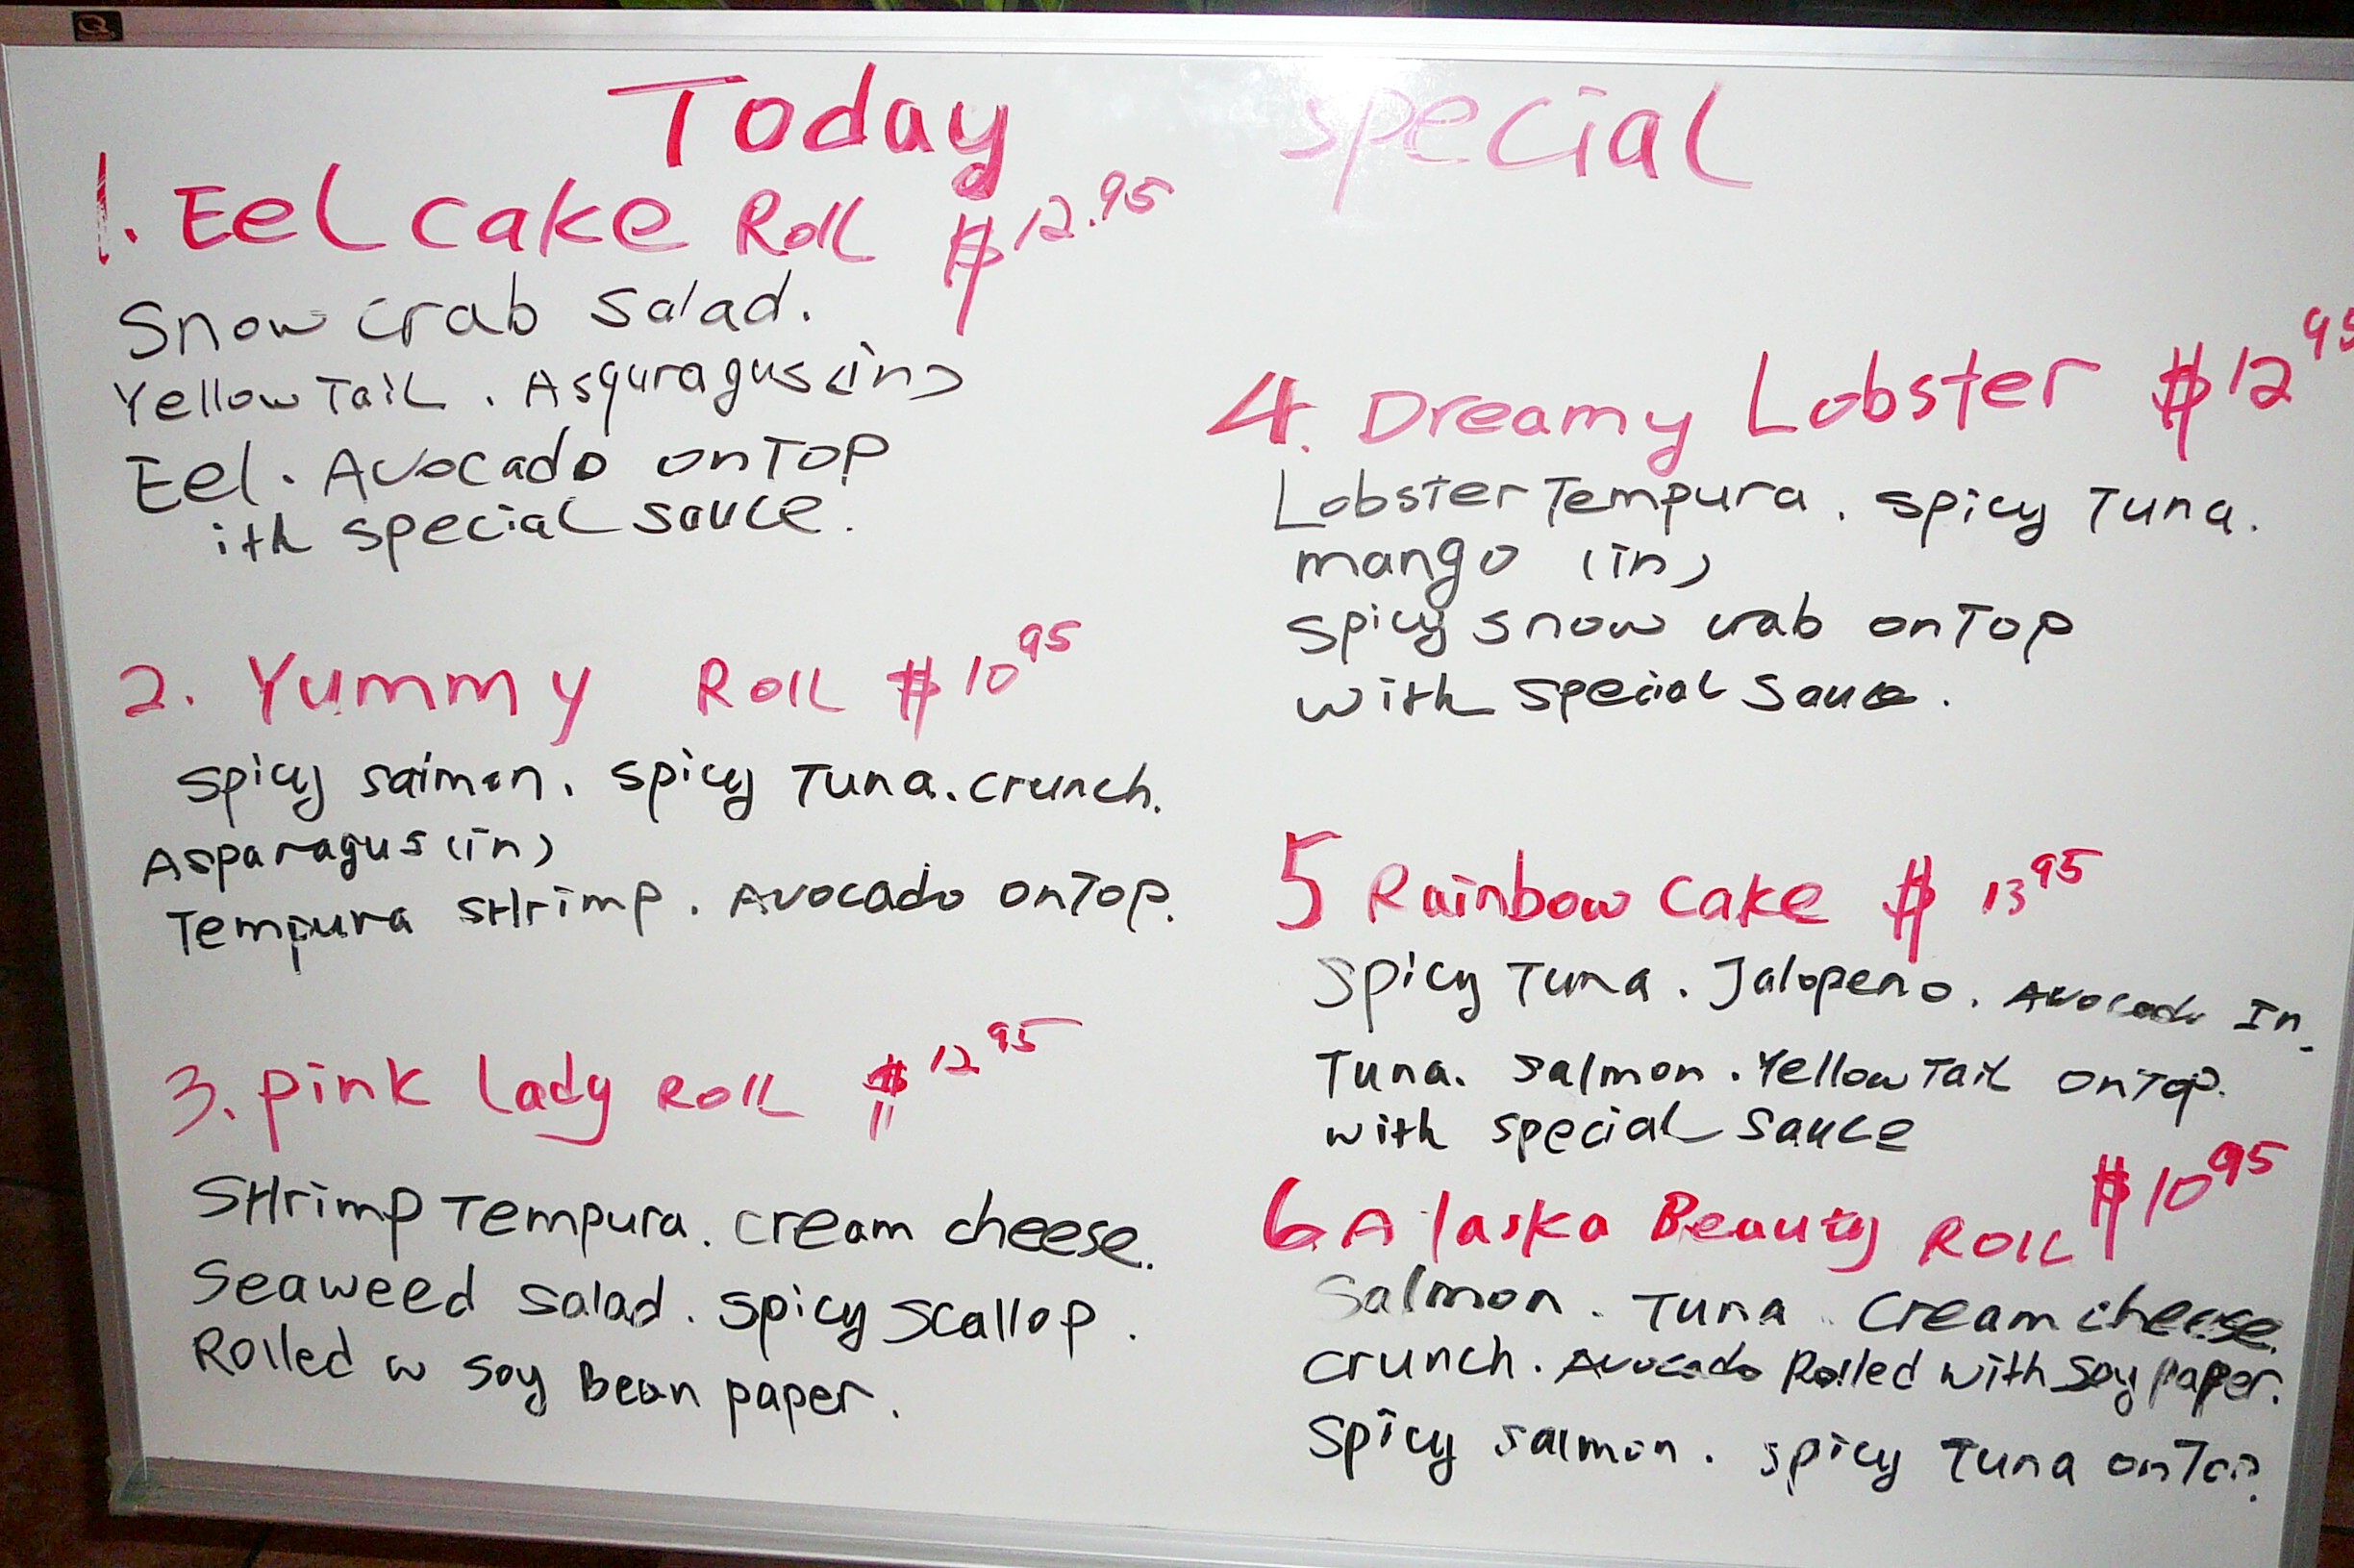 Today special
1. Eel cake Roll $12.95
Snow crab Salad.
Yellow Tail . Asquragus (in)
Eel . Avocado on Top
ith special sauce .
2. Yummy Roll $10 95
Spicy salmon . spicy Tuna . crunch .
Asparagus (in)
Tempura sHrimp . Avocado on Top .
3. pink lady Roll $12 95
SHrimp Tempura . cream cheese .
Seaweed Salad . spicy Scallop .
Rolled w soy Bean paper .
4. Dreamy Lobster $12 95
Lobster Tempura . spicy Tuna .
mango (in)
spicy snow crab on Top
with special sauce .
5 Rainbow cake $ 13 95
Spicy Tuna . Jalopeno . Avocado In .
Tuna . Salmon . Yellow Tail on Top .
with special Sauce
6 Alaska Beauty Roll $10 95
Salmon . Tuna . Cream cheese .
crunch . Avocado Rolled with Soy paper .
Spicy salmon . spicy Tuna on Top .